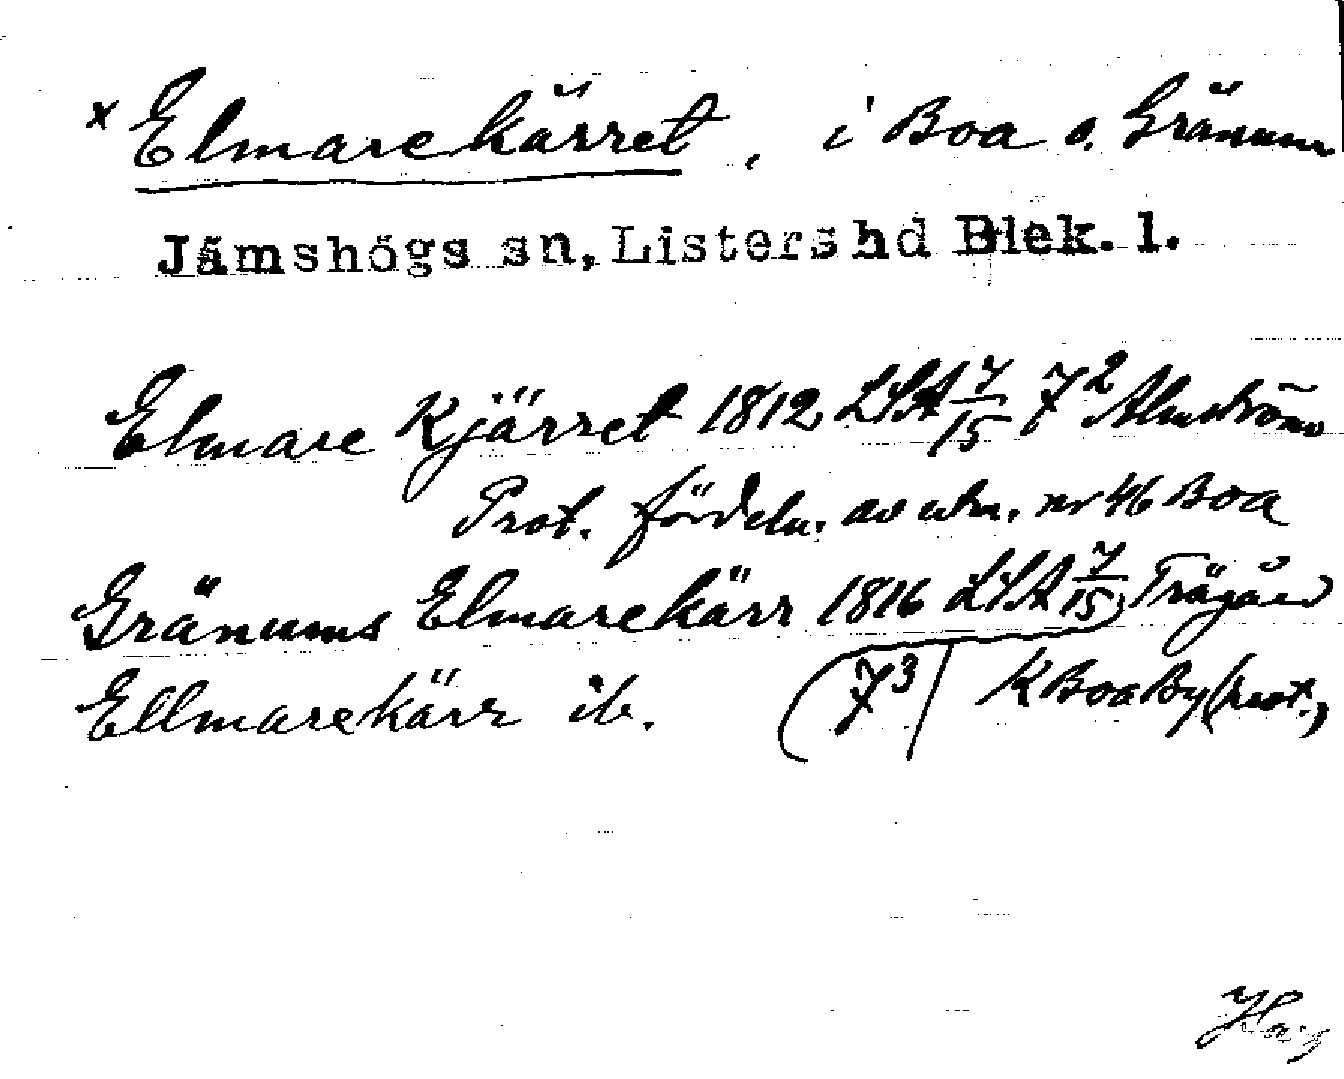 x Elmarekärret, i Boa o. Gränum
Jämshögs sn, Listers hd Blek. l.
Elmare Kjärret 1812 LSA 7/15 7² Almström
Prot. fördeln. av utm. nr 46 Boa
Gränums Elmarekärr 1816 LSA 7/15 Trägård
Ellmarekärr ib. (7³) K Boa By (prot.)